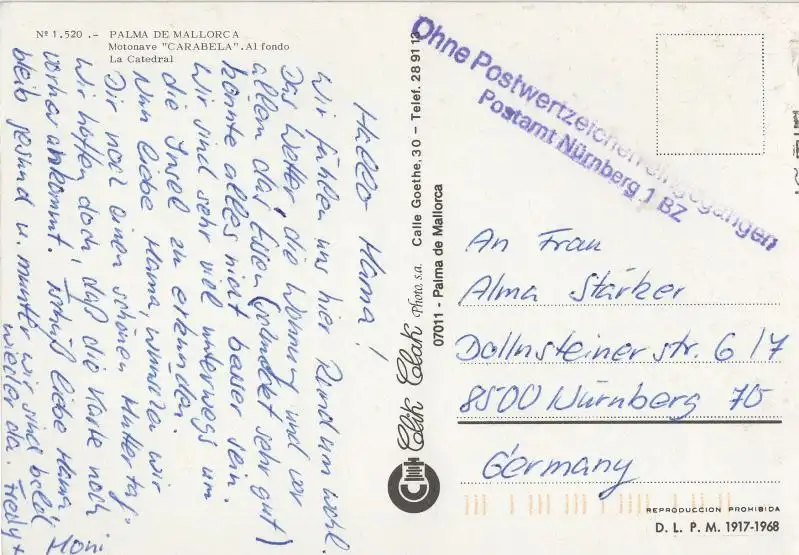 Nº 1.520 .- PALMA DE MALLORCA
Motonave "CARABELA". Al fondo
La Catedral
Hallo Mama!
Wir fühlen uns hier Rund um wohl.
Das Wetter, die Wohnung und vor
allem das Essen (schmeckt sehr gut)
könnte alles nicht besser sein.
Wir sind sehr viel unterwegs um
die Insel zu erkunden.
Nun liebe Mama, wünschen wir
Dir noch einen schönen Muttertag.
Wir hoffen doch, daß die Karte noch
vorher ankommt. Tschüß liebe Mama
bleib gesund u. munter wir sind bald
wieder da. Fredy +
Moni
Clik Clak Photo, s.a. Calle Goethe, 30 – Telef. 28 91 13
07011 - Palma de Mallorca
Ohne Postwertzeichen eingegangen
Postamt Nürnberg 1 BZ
An Frau
Alma Stärker
Dollnsteinerstr. 6 / 7
8500 Nürnberg 70
Germany
REPRODUCCION PROHIBIDA
D. L. P. M. 1917-1968